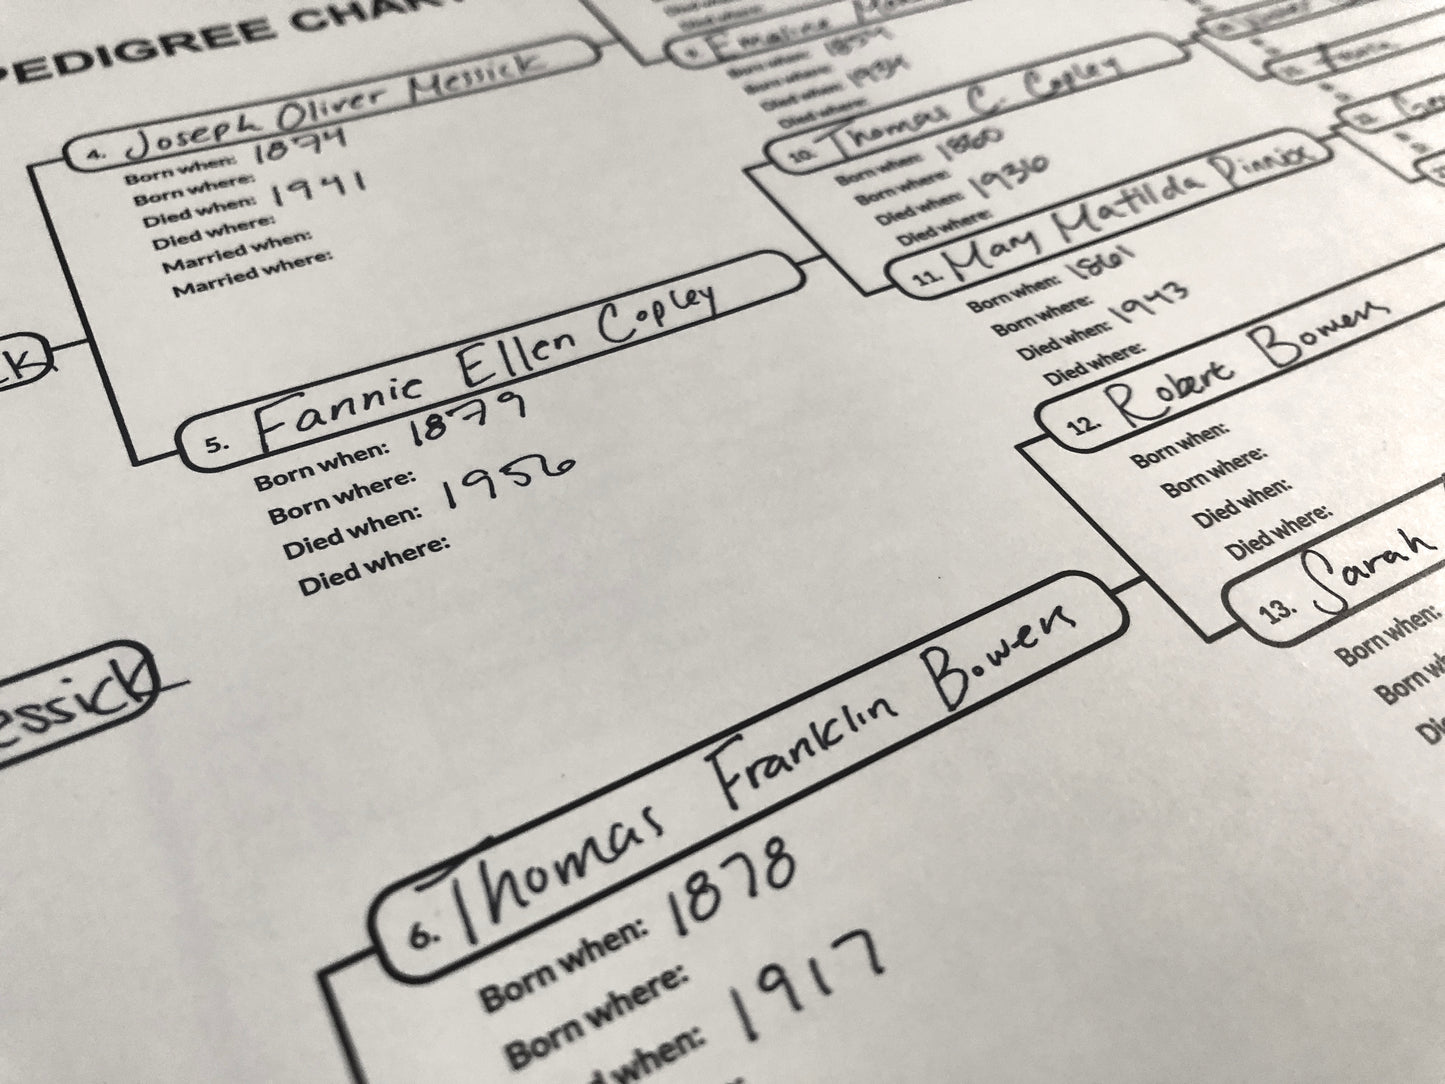 PEDIGREE CHART
4. Joseph Oliver Messick
Born when: 1874
Born where:
Died when: 1941
Died where:
Married when:
Married where:
5. Fannie Ellen Copley
Born when: 1879
Born where:
Died when: 1956
Died where:
essick
6. Thomas Franklin Bowers
Born when: 1878
Born where:
d when: 1917
9. Emaline
Born when:
Born where:
Died when: 1934
Died where:
10. Thomas C. Copley
Born when: 1860
Born where:
Died when: 1936
Died where:
11. Mary Matilda Pinnix
Born when: 1861
Born where:
Died when: 1943
Died where:
12. Robert Bowers
Born when:
Born where:
Died when:
Died where:
13. Sarah
Born when:
Born wh
Di